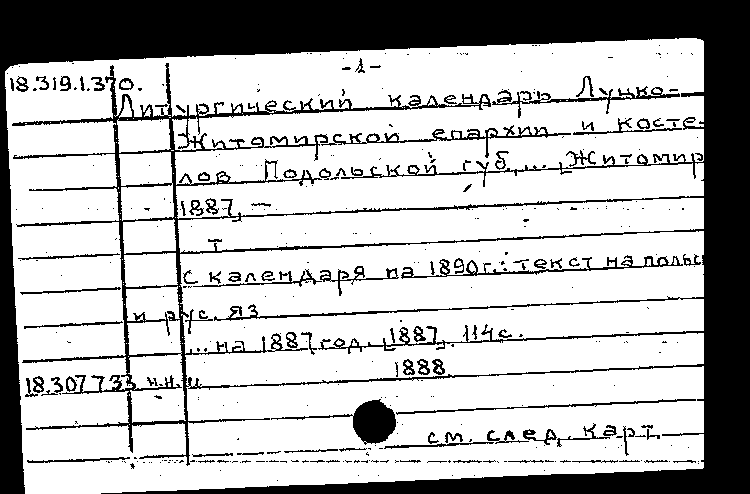 -1-
18.319.1.370.
Литургический календарь Луцко-
Житомирской епархии и косте-
лов Подольской губ, ... Житомир
1887, —
т
С календаря на 1890 г.: текст на польс
и рус. яз
... на 1887 год. 1887. 114 с.
18.307 7 33 н.н.ш 1888.
см. след. карт.